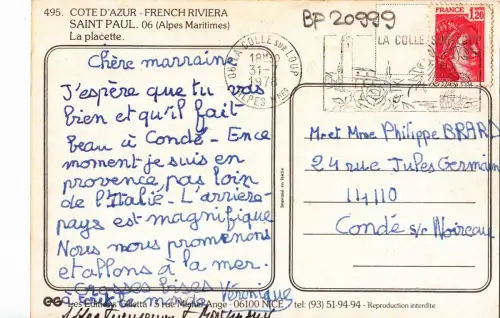 495. COTE D'AZUR - FRENCH RIVIERA
SAINT PAUL. 06 (Alpes Maritimes)
La placette.
BP 20999
06 LA COLLE SUR LOUP
18H30
31-7
1978
ALPES MMES
LA COLLE SUR
FRANCE
1,20
Chère marraine
J'espère que tu vas
bien et qu'il fait
beau à Condé - En ce
moment je suis en
provence, pas loin
de l'Italie - L'arrière-
pays est magnifique
Nous nous promenons
et allons à la mer.
Grosses bises Véronique
à tout le monde
Mr et Mme Philippe BRARD
24 rue Jules Germain
14110
Condé s/r Noireau
Imprimé en Italie
Les Editions Gilletta 15 rue Michel-Ange 06100 NICE tel: (93) 51-94-94 - Reproduction interdite